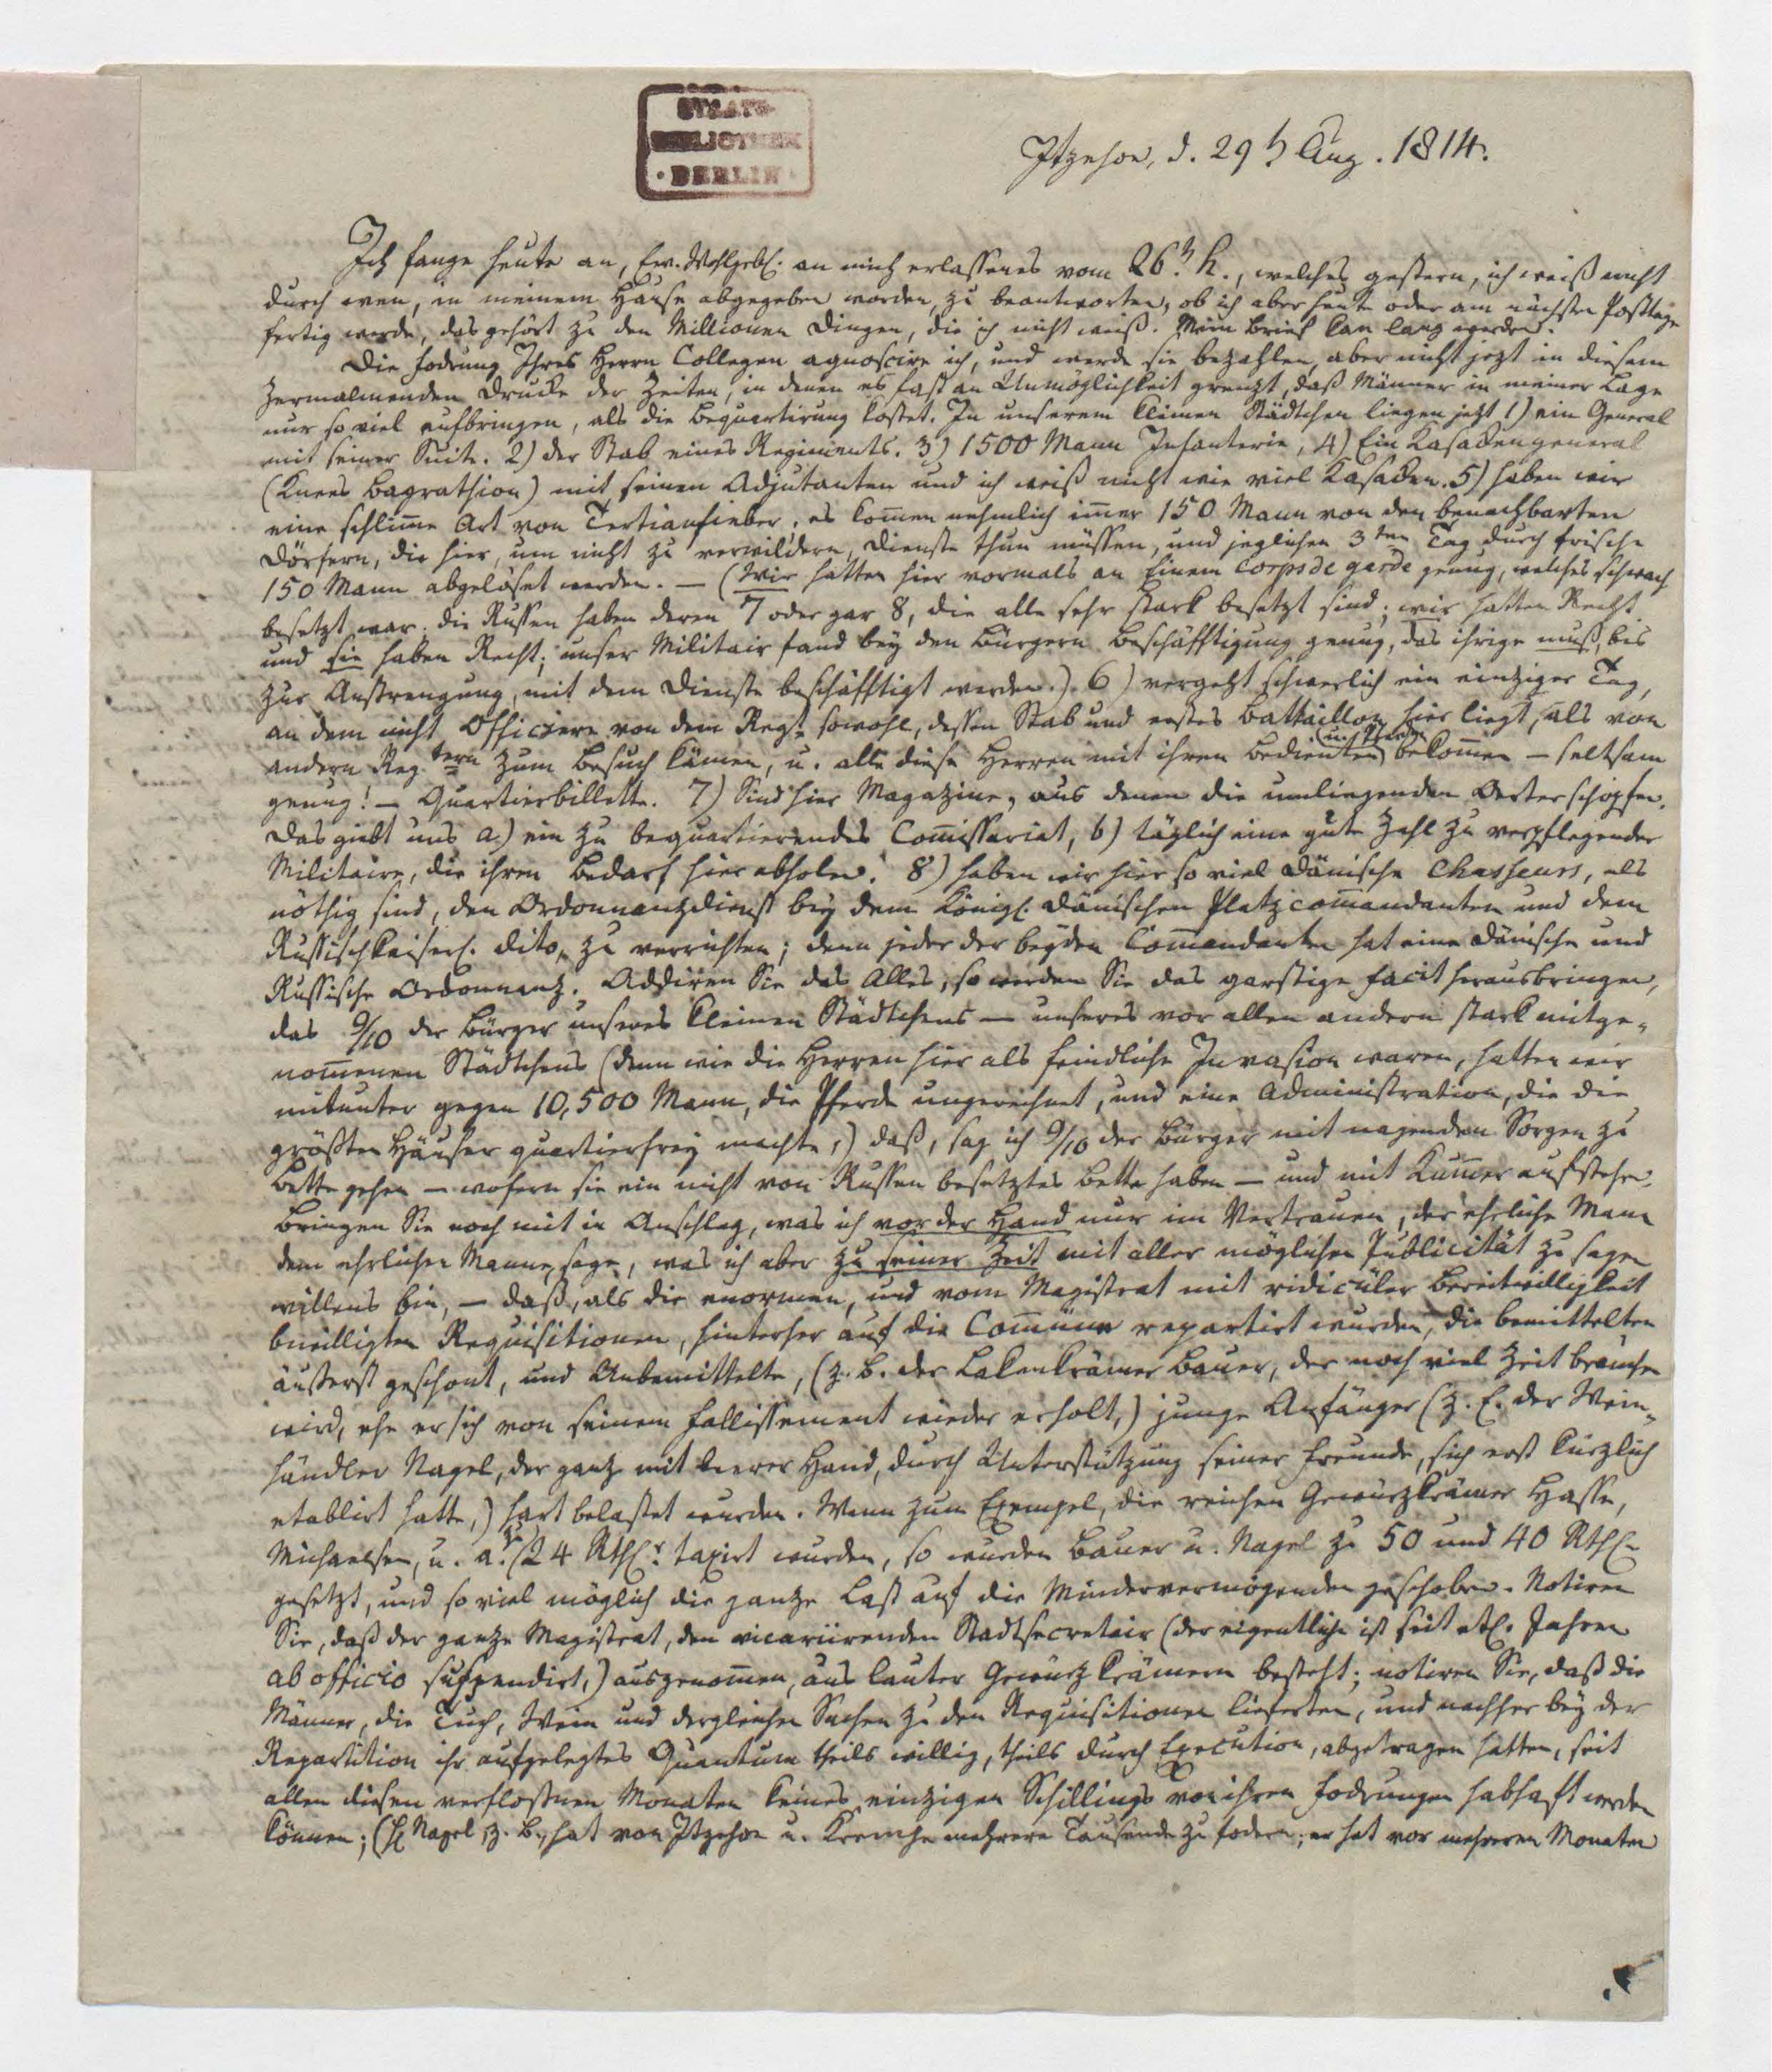 STAATS-
BIBLIOTHEK
· BERLIN ·
Itzehoe, d. 29 h Aug. 1814.
Ich fange heute an, Ew. Wohlgeb. an mich erlassenes vom 26. h., welches gestern, ich weiß nicht
durch wen, in meinem Hause abgegeben worden, zu beantworten, ob ich aber heute oder am nächsten Posttage
fertig werde, das gehört zu den Millionen Dingen, die ich nicht weiß. Mein Brief kan lang werden.
Die Fodrung Ihres Herrn Collegen agnoscire ich, und werde sie bezahlen, aber nicht jezt in diesem
zermalmenden Drucke der Zeiten, in denen es fast an Unmöglichkeit grenzt, daß Männer in meiner Lage
nur so viel aufbringen, als die Bequartirung kostet. In unserem kleinen Städtchen liegen jetzt 1) ein General
mit seiner Suite. 2) der Stab eines Regiments. 3) 1500 Mann Infanterie, 4) Ein Kasackengeneral
(Knees Bagrathion) mit seinen Adjutanten und ich weiß nicht wie viel Kasacken. 5) haben wir
eine schlim̅e Art von Tertianfieber, es kom̅en nehmlich im̅er 150 Mann von den benachbarten
Dörfern, die hier, um nicht zu verwildern, Dienste thun müssen, und jeglichen 3ten Tag durch frische
150 Mann abgelöset werden. — (Wir hatten hier vormals an Einem Corps de garde genug, welches schwach
besetzt war. Die Russen haben deren 7 oder gar 8, die alle sehr stark besetzt sind; wir hatten Recht
und sie haben Recht; unser Militair fand bey den Bürgern Beschäfftigung genug, das ihrige muß, bis
zur Anstrengung, mit dem Dienste beschäfftigt werden.). 6) vergeht schwerlich ein einziger Tag,
an dem nicht Officiere von dem Regt sowohl, dessen Stab und erstes Battaillon hier liegt, als von
andern Reg.tern zum Besuch kämen, u. alle diese Herren mit ihren Bedienten (und Pferden) bekom̅en — seltsam
genug! — Quartierbillette. 7) Sind hier Magazine, aus denen die umliegenden Oerter schöpfen.
Das giebt uns a.) ein zu bequartierendes Com̅issariat, b) täglich eine gute Zahl zu verpflegender
Militaire, die ihren Bedarf hier abholen. 8) haben wir hier so viel Dänische Chasseurs, als
nöthig sind, den Ordonnanzdienst bey dem Königl. Dänischen Platzcom̅andanten und dem
Russischkaiserl. dito, zu verrichten; denn jeder der beyden Com̅andanten hat eine Dänische und
Russische Ordonnanz. Addiren Sie das Alles, so werden Sie das garstige facit herausbringen,
das 9/10 der Bürger unseres kleinen Städtchens — unseres vor allen andern stark mitge-
nom̅enen Städtchens (denn wie die Herren hier als feindliche Invasion waren, hatten wir
mitunter gegen 10,500 Mann, die Pferde ungerechnet, und eine Administration, die die
größten Häuser quartierfrey machte,) daß, sag ich 9/10 der Bürger mit nagenden Sorgen zu
Bette gehen — wofern sie ein nicht von Russen besetztes Bette haben — und mit Kum̅er aufstehen.
Bringen Sie noch mit in Anschlag, was ich vor der Hand nur im Vertrauen, der ehrliche Mann
dem ehrlichen Manne, sage, was ich aber zu seiner Zeit mit aller möglichen Publicität zu sagen
willens bin, — daß, als die enormen, und vom Magistrat mit ridicüler Bereitwilligkeit
bewilligten Requisitionen, hinterher auf die Com̅üne repartirt wurden, die Bemittelten
äußerst geschont, und Unbemittelte, (z. B. der Lakenkrämer Bauer, der noch viel Zeit brauchen
wird, ehe er sich von seinem Fallissement wieder erholt,) junge Anfänger (z. E. der Wein-
händler Nagel, der ganz mit leerer Hand, durch Unterstützung seiner Freunde, sich erst kürzlich
etablirt hatte,) hart belastet wurden. Wenn zum Exempel, die reichen Gewürzkrämer Hasse,
Michaelsen, u. a. zu 24 Rthlr. taxirt wurden, so wurden Bauer u. Nagel zu 50 und 40 Rthl.
gesetzt, und so viel möglich die ganze Last auf die Mindervermögenden geschoben. Notiren
Sie, daß der ganze Magistrat, den vicariirenden Stadtsecretair (der eigentliche ist seit etl. Jahren
ab officio suspendirt,) ausgenom̅en, aus lauter Gewürzkrämern besteht; notiren Sie, daß die
Männer, die Tuch, Wein und dergleichen Sachen zu den Requisitionen lieferten, und nachher bey der
Repartition ihr aufgelegtes Quantum theils willig, theils durch Execution, abgetragen hatten, seit
allen diesen verfloßnen Monaten keines einzigen Schillings von ihren Fodrungen habhaft werden
können; (H Nagel z. B. hat von Itzehoe u. Krempe mehrere Tausende zu fodern; er hat vor mehreren Monaten